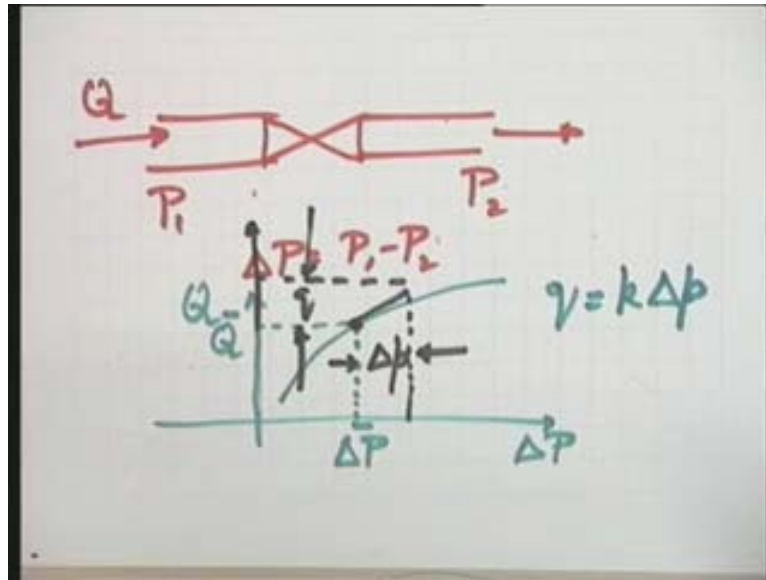 Q
P₁ P₂
ΔP = P₁-P₂
Q q
Q̄
q = kΔp
Δp
ΔP̄ ΔP